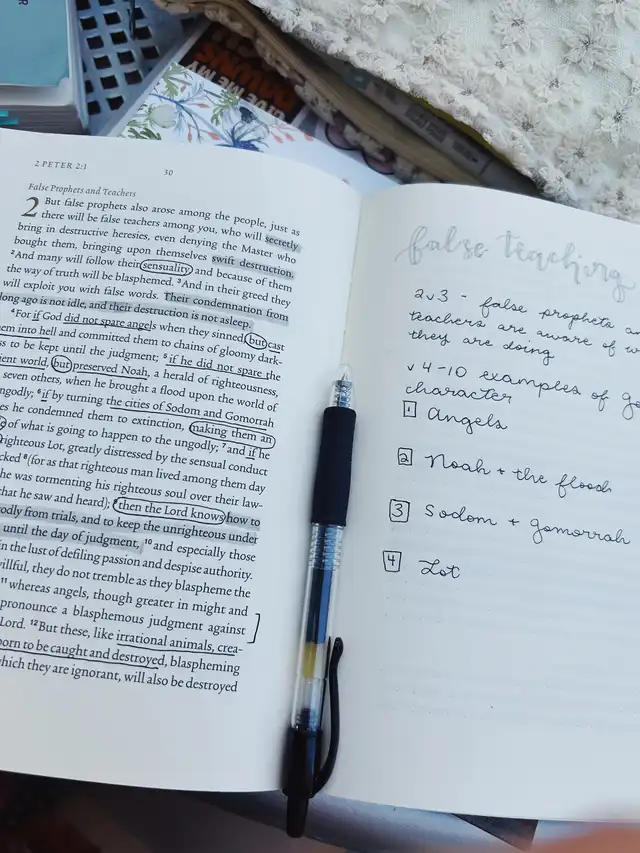 2 PETER 2:1
30
False Prophets and Teachers
2 But false prophets also arose among the people, just as
there will be false teachers among you, who will secretly
bring in destructive heresies, even denying the Master who
bought them, bringing upon themselves swift destruction.
2 And many will follow their sensuality, and because of them
the way of truth will be blasphemed. 3 And in their greed they
will exploit you with false words. Their condemnation from
long ago is not idle, and their destruction is not asleep.
4 For if God did not spare angels when they sinned, but cast
into hell and committed them to chains of gloomy dark-
to be kept until the judgment; 5 if he did not spare the
world, but preserved Noah, a herald of righteousness,
seven others, when he brought a flood upon the world of
6 if by turning the cities of Sodom and Gomorrah
he condemned them to extinction, making them an
of what is going to happen to the ungodly; 7 and if he
righteous Lot, greatly distressed by the sensual conduct
(for as that righteous man lived among them day
he was tormenting his righteous soul over their law-
that he saw and heard); 9 then the Lord knows how to
from trials, and to keep the unrighteous under
until the day of judgment, 10 and especially those
in the lust of defiling passion and despise authority.
they do not tremble as they blaspheme the
11 whereas angels, though greater in might and
pronounce a blasphemous judgment against
Lord. 12 But these, like irrational animals, crea-
to be caught and destroyed, blaspheming
which they are ignorant, will also be destroyed
false teaching
2v3 - false prophets
teachers are aware of
they are doing
v 4-10 examples of
character
1 Angels
2 Noah + the flood
3 Sodom + gomorrah
4 Lot
GIVE ME MY